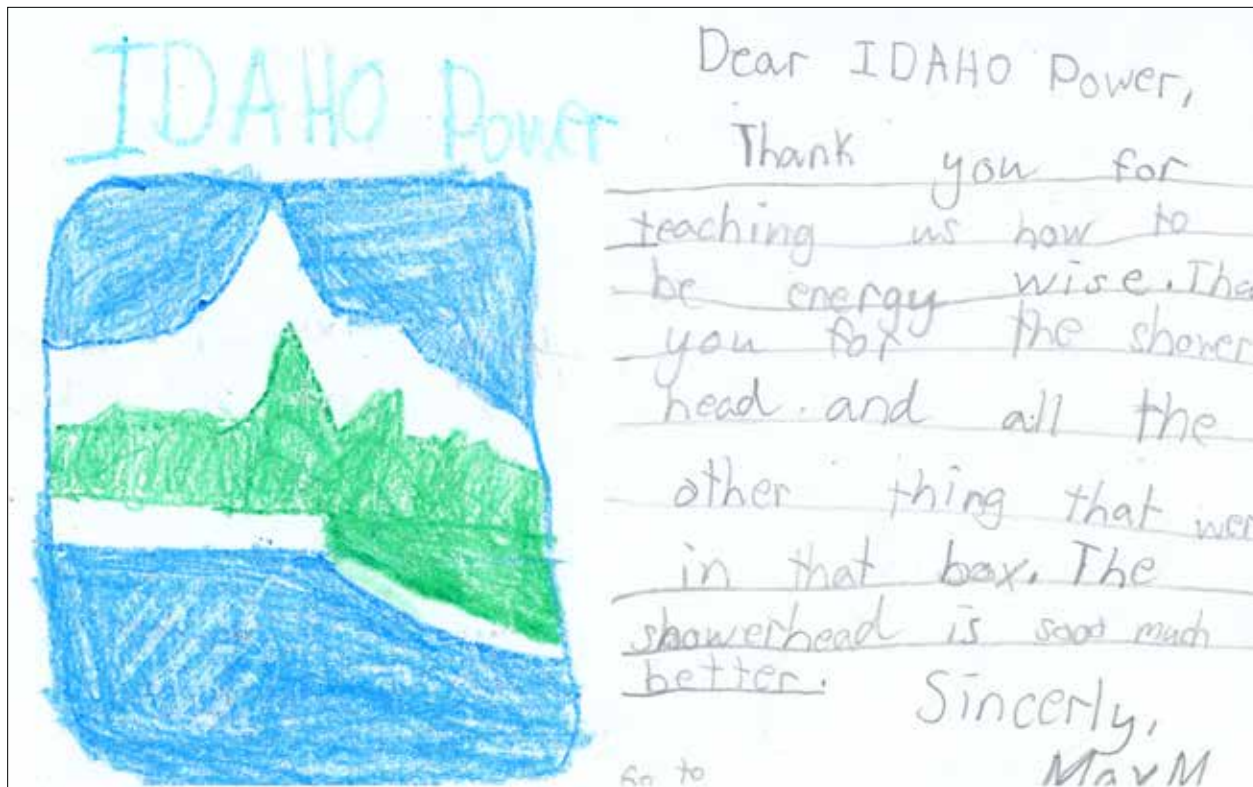 IDAHO Power
Dear IDAHO Power,
Thank you for
teaching us how to
be energy wise. Tha
you for the shower
head. and all the
other thing that wer
in that box. The
showerhead is sooo much
better.
Sincerly,
Max M
Go to